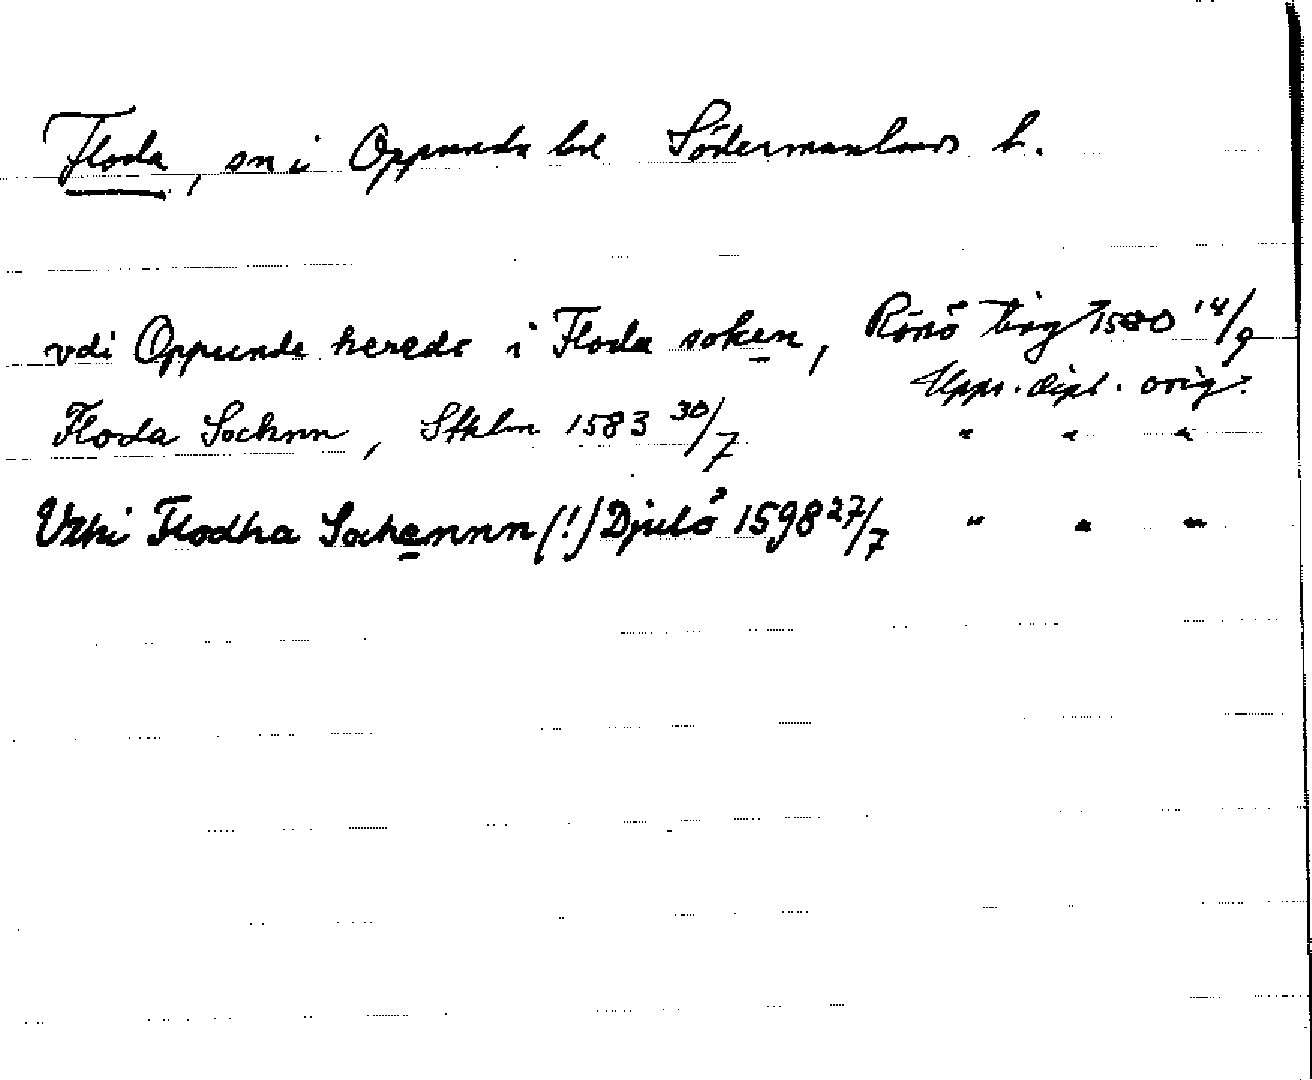 Floda, sn i Oppunda hd Södermanlands l.
vdi Oppunde herede i Floda soken, Rönö ting 1580 14/9
Upps. dipl. orig.
Floda Socknn, Sthlm 1583 30/7 " " "
Vthi Flodha Sochennnn (!) Djulö 1598 27/7 " " "